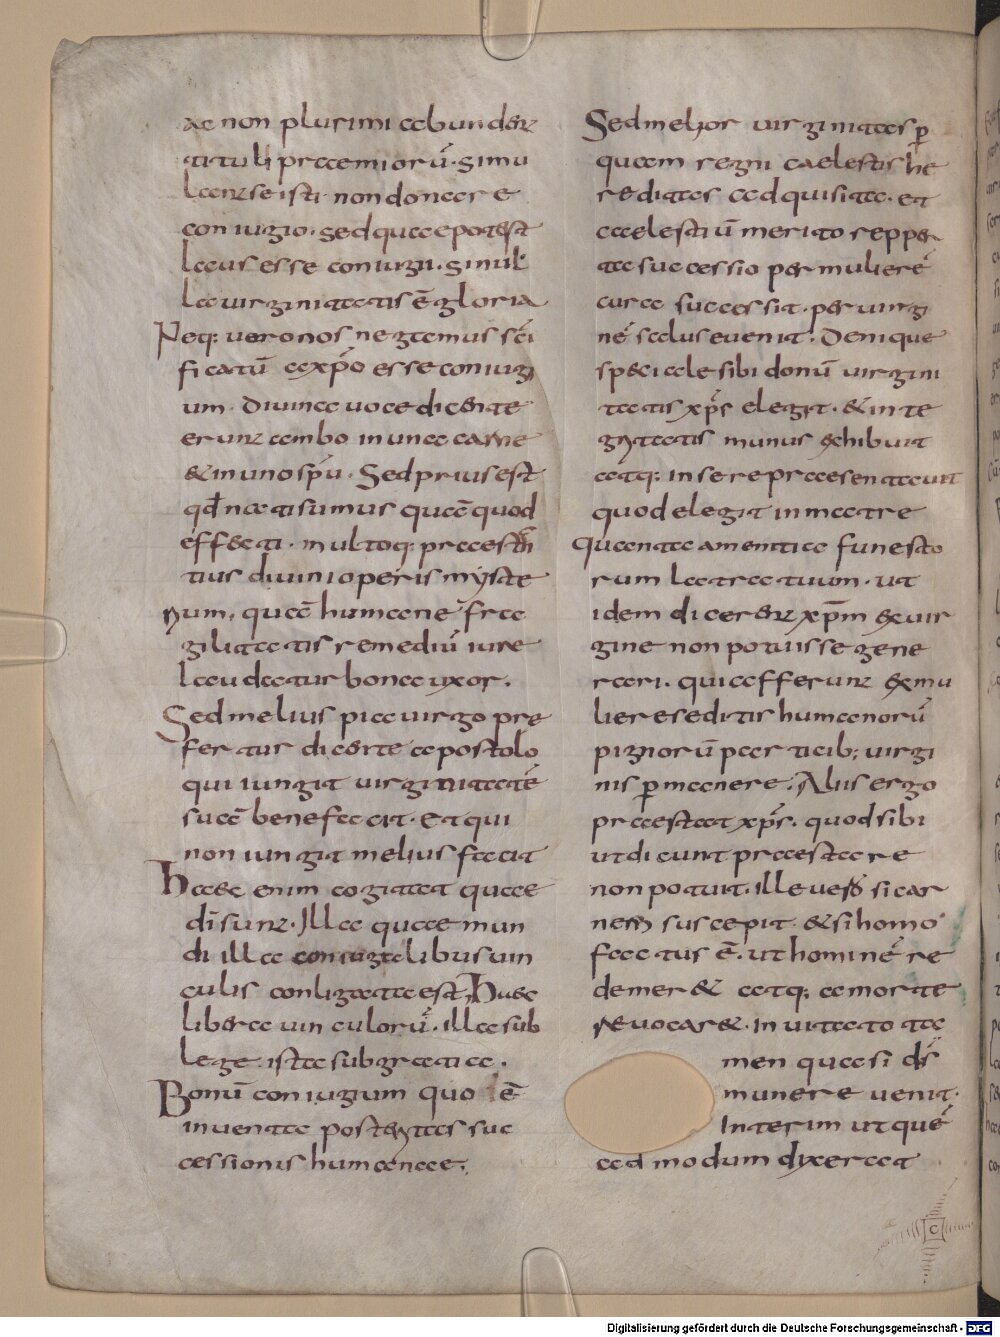 ac non plurimi abundent
tituli praemiorū. simu
lent se isti non donare
coniugio. sed quae potest
laus esse coniugii. simul
la virginitatis ē gloria
Neq: vero nos negamus sc̄i
ficatū a xp̄o esse coniugi
um. Divina voce dicente
erunt ambo in una carne
& in uno sp̄u. Sed prius est
qđ nati sumus quā quod
effecti. multoq: praestan
tius divini operis myste
rium, quā humanę fra
gilitatis remediū iure
laudatur bona uxor.
Sed melius pia virgo pre
fertur dicente apostolo
qui iungit virginitatē
suā bene facit. et qui
non iungit melius facit
Haec enim cogitat quae
dī sunt. Illa quae mun
di illa coniugali bus vin
culis conligata est, Huec
libera vinculorū. illa sub
lege. ista sub gratia.
Bonū coniugium quo ē
inventa posteritas suc
cessionis humanae.
Sed melior virginitas p
quam regni caelestis he
reditas adquisita. et
caelestiū merito reppar
ta successio per mulierē
cura successit. per virgi
nē salus evenit. Denique
speciale sibi donū virgini
tatis xp̄s elegit. & inte
gritatis munus exhibuit
atq: in se repraesentavit
quod elegit in matre
Quanta amentia funesto
rum latratuum. ut
idem dicerent xp̄m ex vir
gine non potuisse gene
rari. qui afferunt ex mu
liere seditis humanorū
pignorū partib; virgi
nis pmanere. Aliis ergo
praestat xp̄s. quod sibi
ut dicunt praestare
non potuit. ille vero si car
nem suscepit. & si homo
factus ē. ut hominē re
demer& atq; a morte
revocar&. in vita to ta
men quasi dī
munere venit.
Interim ut quē
ad modum dixerat
c
Digitalisierung gefördert durch die Deutsche Forschungsgemeinschaft - DFG